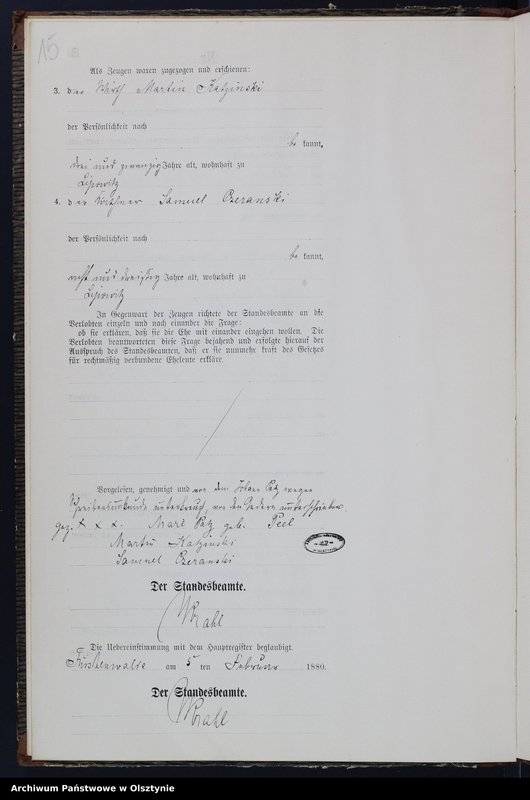 15
Als Zeugen waren zugezogen und erschienen:
3. der Wirth Martin Katzinski
der Persönlichkeit nach
be kannt,
drei und zwanzig Jahre alt, wohnhaft zu
Lipowitz
4. der Käthner Samuel Czeranski
der Persönlichkeit nach
be kannt,
acht und dreißig Jahre alt, wohnhaft zu
Lipowitz
In Gegenwart der Zeugen richtete der Standesbeamte an die
Verlobten einzeln und nach einander die Frage:
ob sie erklären, daß sie die Ehe mit einander eingehen wollen. Die
Verlobten beantworteten diese Frage bejahend und erfolgte hierauf der
Ausspruch des Standesbeamten, daß er sie nunmehr kraft des Gesetzes
für rechtmäßig verbundene Eheleute erkläre.
Vorgelesen, genehmigt und von dem Johann Petz wegen
Schreibensunkunde unterkreuzt, von den Andern unterschrieben.
gez. + + +. Marie Petz geb. Peel
Martin Katzinski
Samuel Czeranski
Der Standesbeamte.
Wrahl
Die Uebereinstimmung mit dem Hauptregister beglaubigt.
Fürstenwalde am 5 ten Februar 1880.
Der Standesbeamte.
Wrahl
Archiwum Państwowe w Olsztynie